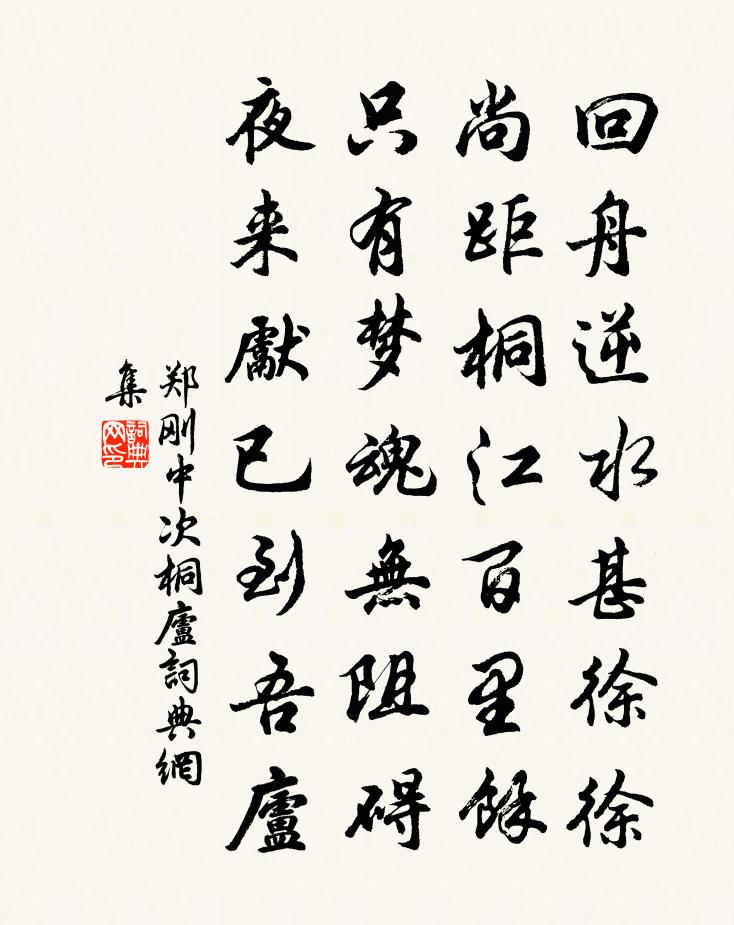 回舟逆水甚徐徐
尚距桐江百里餘
只有梦魂無阻碍
夜来獻已到吾廬
郑刚中次桐廬詞典網
集
詞典
网印